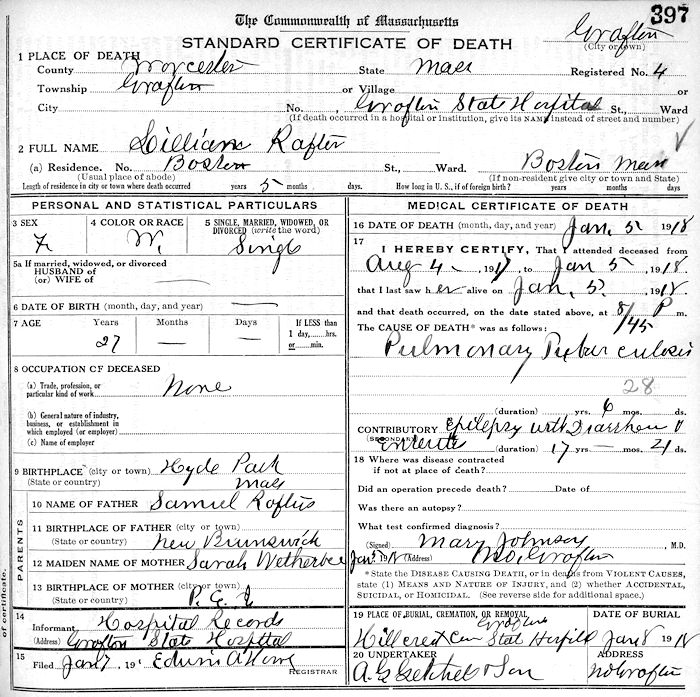 The Commonwealth of Massachusetts
397
STANDARD CERTIFICATE OF DEATH
Grafton
(City or town)
1 PLACE OF DEATH
County Worcester State Mass Registered No. 4
Township Grafton or Village or
City No., Grafton State Hospital St., Ward
(If death occurred in a hospital or institution, give its NAME instead of street and number)
2 FULL NAME Lillian Rafter
(a) Residence. No. Boston St., Ward. Boston Mass
(Usual place of abode) (If non-resident give city or town and State)
Length of residence in city or town where death occurred years 5 months days. How long in U. S., if of foreign birth? years months days.
PERSONAL AND STATISTICAL PARTICULARS
3 SEX
F
4 COLOR OR RACE
W.
5 SINGLE, MARRIED, WIDOWED, OR
DIVORCED (write the word)
Single
5a If married, widowed, or divorced
HUSBAND of
(or) WIFE of —
6 DATE OF BIRTH (month, day, and year) —
7 AGE Years Months Days If LESS than
27 — — 1 day,....hrs.
or....min.
8 OCCUPATION OF DECEASED
(a) Trade, profession, or
particular kind of work None
(b) General nature of industry,
business, or establishment in
which employed (or employer)
(c) Name of employer
9 BIRTHPLACE (city or town) Hyde Park
(State or country) Mass
PARENTS
10 NAME OF FATHER Samuel Raftus
11 BIRTHPLACE OF FATHER (city or town)
(State or country) New Brunswick
12 MAIDEN NAME OF MOTHER Sarah Wetherbee
13 BIRTHPLACE OF MOTHER (city or town)
(State or country) P. E. I
14
Informant Hospital Records
(Address) Grafton State Hospital
15
Filed Jan 7, 191 Edwin A Howe
REGISTRAR
of certificate.
MEDICAL CERTIFICATE OF DEATH
16 DATE OF DEATH (month, day, and year) Jan. 5 1918
17
I HEREBY CERTIFY, That I attended deceased from
Aug 4 1917, to Jan 5 1918
that I last saw her alive on Jan. 5. 1918.
and that death occurred, on the date stated above, at 8/45 P m.
The CAUSE OF DEATH* was as follows:
Pulmonary Tuberculosis
28
(duration) yrs. 6 mos. ds.
CONTRIBUTORY Epilepsy with Diarrhoea
(SECONDARY) Enteritis (duration) 17 yrs. — mos. 21 ds.
18 Where was disease contracted
if not at place of death?
Did an operation precede death? Date of
Was there an autopsy?
What test confirmed diagnosis?
(Signed) Mary Johnson, M.D.
Jan 5 1918 (Address) No. Grafton
*State the DISEASE CAUSING DEATH, or in deaths from VIOLENT CAUSES,
state (1) MEANS AND NATURE OF INJURY, and (2) whether ACCIDENTAL,
SUICIDAL, or HOMICIDAL. (See reverse side for additional space).
19 PLACE OF BURIAL, CREMATION, OR REMOVAL DATE OF BURIAL
Grafton
Hillcrest Cem State Hospital Jan 8 1918
20 UNDERTAKER ADDRESS
& Son No Grafton